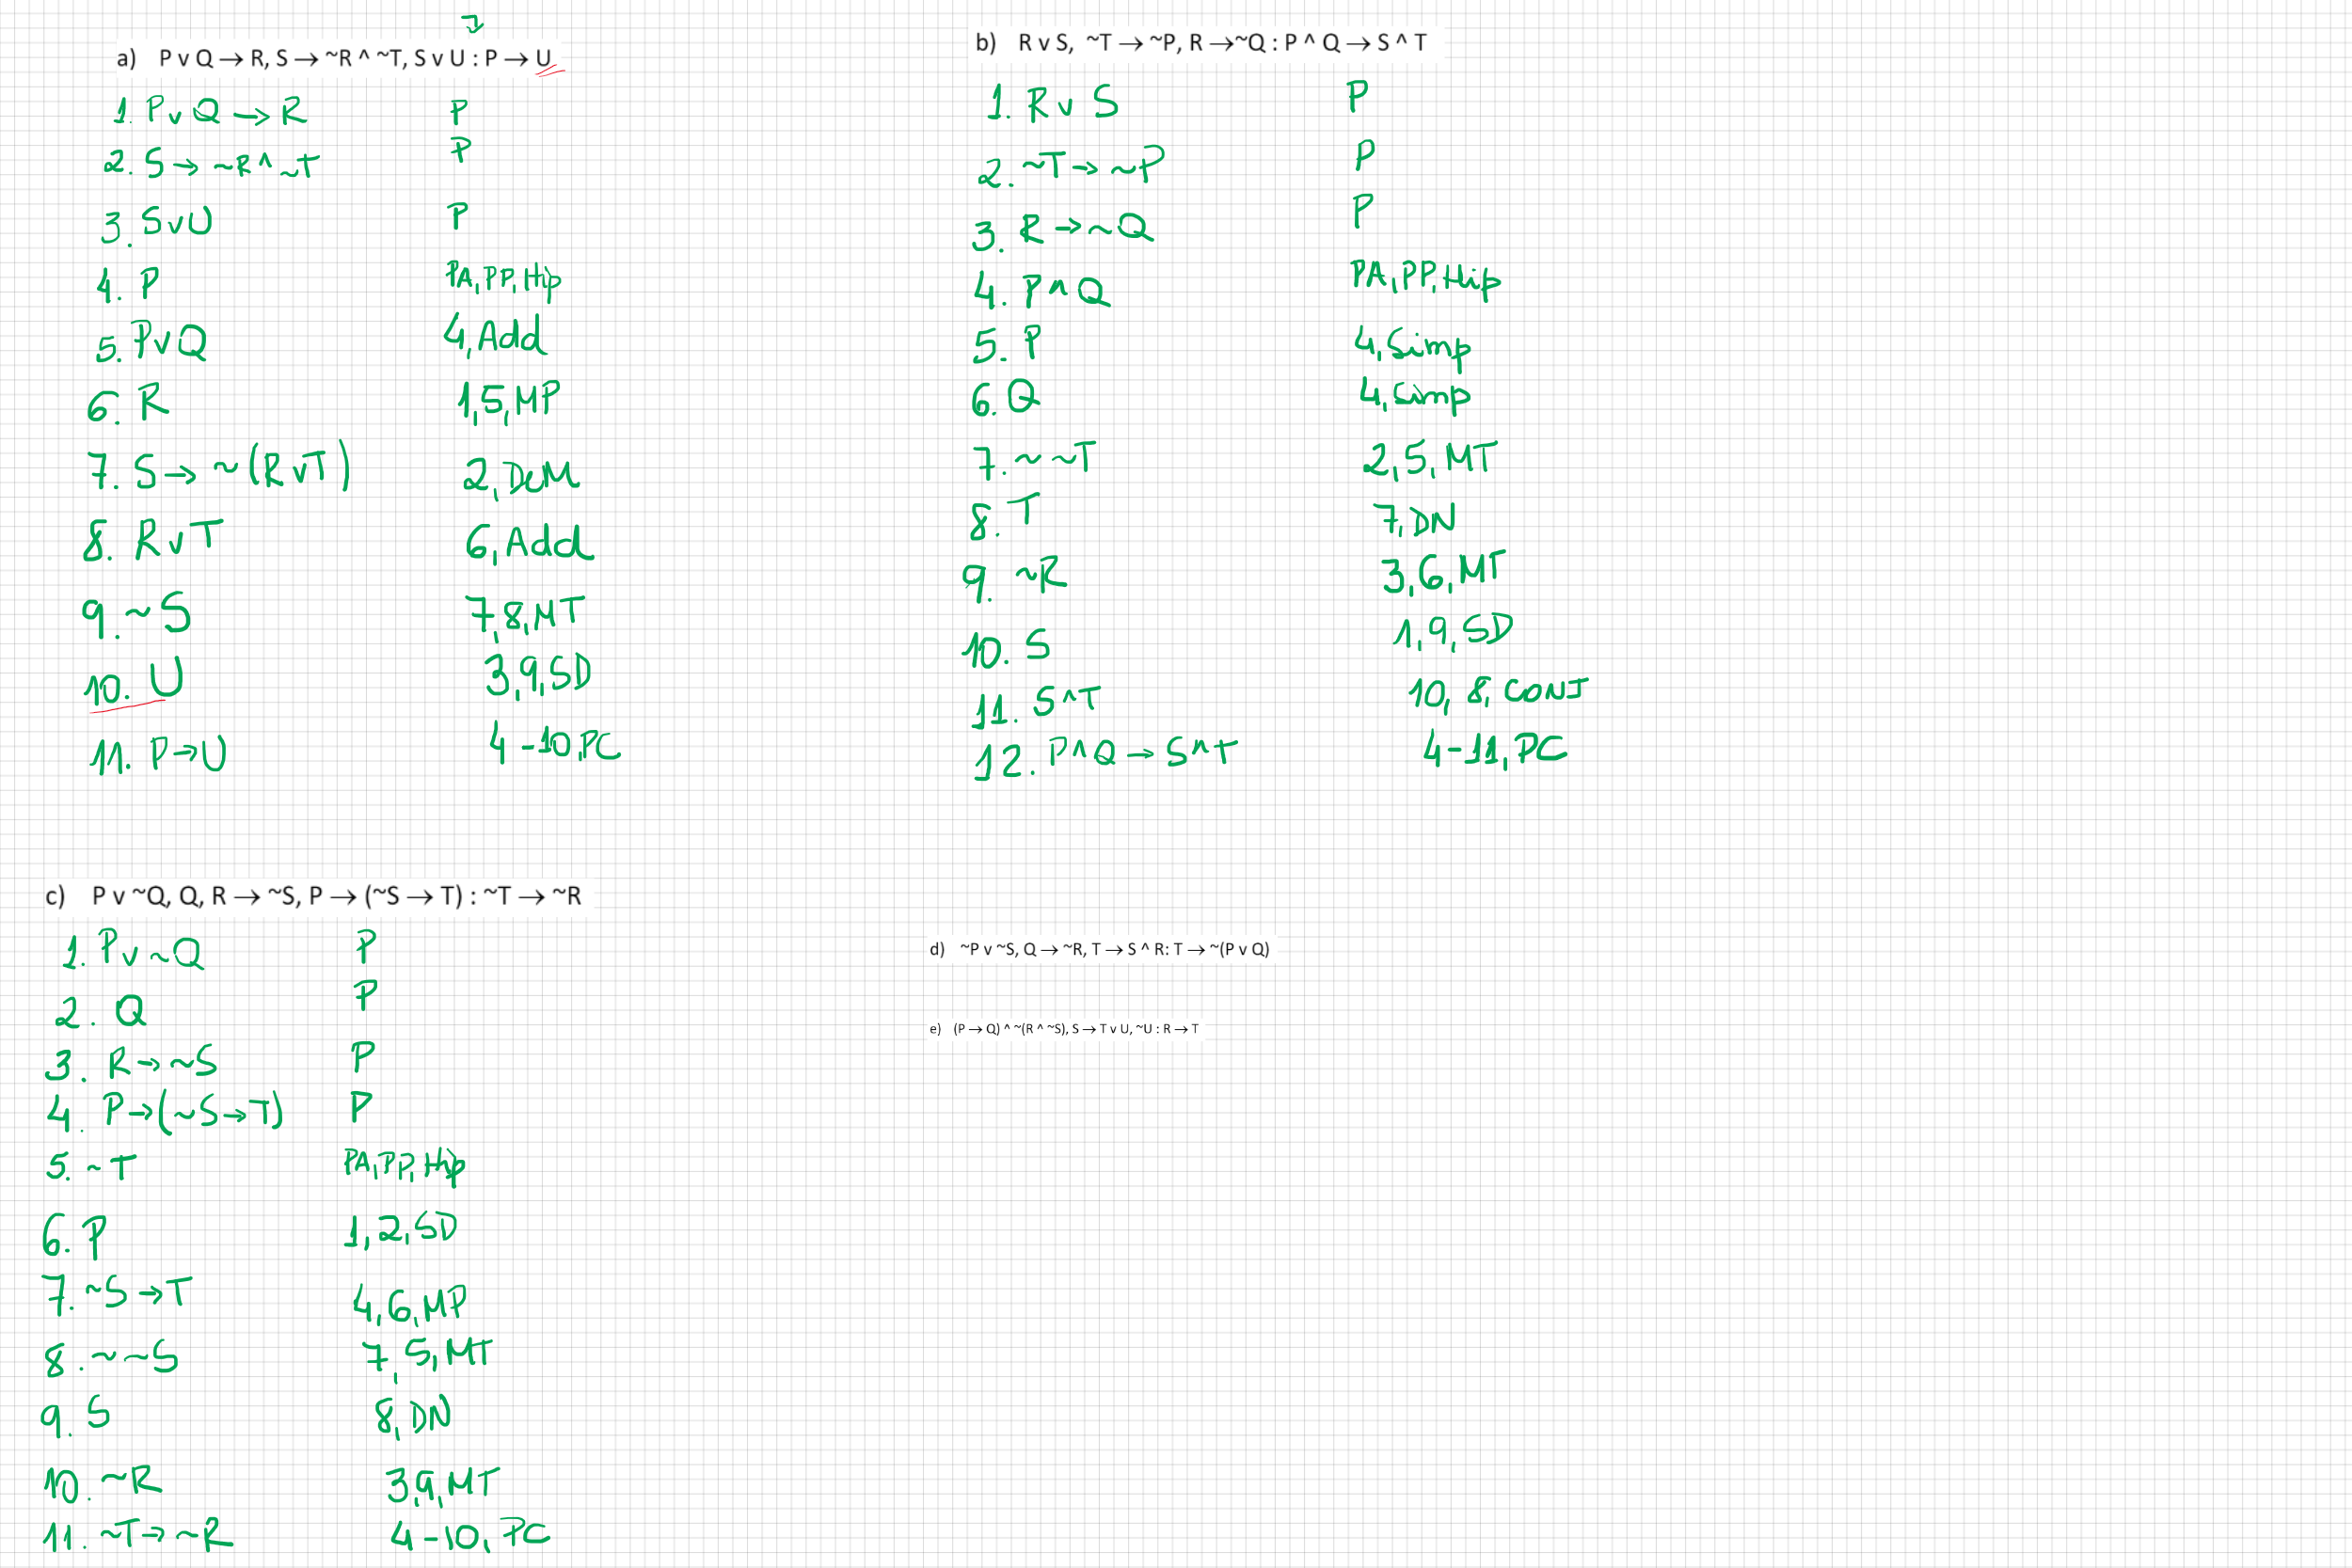 a) P v Q → R, S → ~R ^ ~T, S v U : P → U
1. P v Q → R P
2. S → ~R ^ ~T P
3. S v U P
4. P PA, PP, Hip
5. P v Q 4, Add
6. R 1, 5, MP
7. S → ~(R v T) 2, DeM
8. R v T 6, Add
9. ~S 7, 8, MT
10. U 3, 9, SD
11. P → U 4-10, PC
b) R v S, ~T → ~P, R → ~Q : P ^ Q → S ^ T
1. R v S P
2. ~T → ~P P
3. R → ~Q P
4. P ^ Q PA, PP, Hip
5. P 4, Simp
6. Q 4, Simp
7. ~~T 2, 5, MT
8. T 7, DN
9. ~R 3, 6, MT
10. S 1, 9, SD
11. S ^ T 10, 8, CONJ
12. P ^ Q → S ^ T 4-11, PC
c) P v ~Q, Q, R → ~S, P → (~S → T) : ~T → ~R
1. P v ~Q P
2. Q P
3. R → ~S P
4. P → (~S → T) P
5. ~T PA, PP, Hip
6. P 1, 2, SD
7. ~S → T 4, 6, MP
8. ~~S 7, 5, MT
9. S 8, DN
10. ~R 3, 9, MT
11. ~T → ~R 4-10, PC
d) ~P v ~S, Q → ~R, T → S ^ R: T → ~(P v Q)
e) (P → Q) ^ ~(R ^ ~S), S → T v U, ~U : R → T